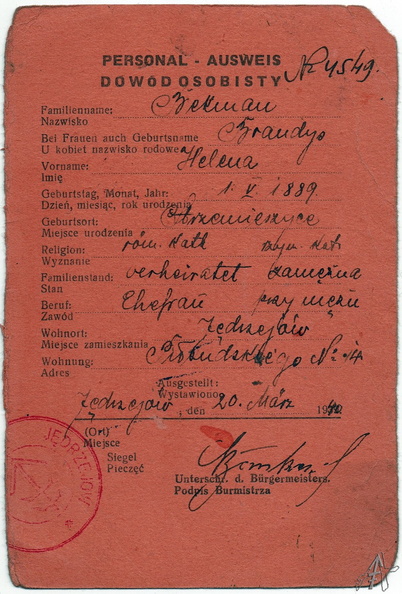 PERSONAL - AUSWEIS
DOWÓD OSOBISTY Nr 4549.
Familienname: Bekman
Nazwisko
Bei Frauen auch Geburtsname Brandys
U kobiet nazwisko rodowe
Vorname: Helena
Imię
Geburtstag, Monat, Jahr: 1. V. 1889
Dzień, miesiąc, rok urodzenia
Geburtsort: Strzemieszyce
Miejsce urodzenia
Religion: röm. Kath rzym. Kat.
Wyznanie
Familienstand: verheiratet zamężna
Stan
Beruf: Ehefrau przy mężu
Zawód
Wohnort: Jędrzejów
Miejsce zamieszkania
Wohnung: Piłsudskiego No 14
Adres
Ausgestellt:
Wystawiono
Jędrzejów, den 20. März 1940
(Ort)
Miejsce
Siegel
Pieczęć
JĘDRZEJÓW
Unterschr. d. Bürgermeisters.
Podpis Burmistrza